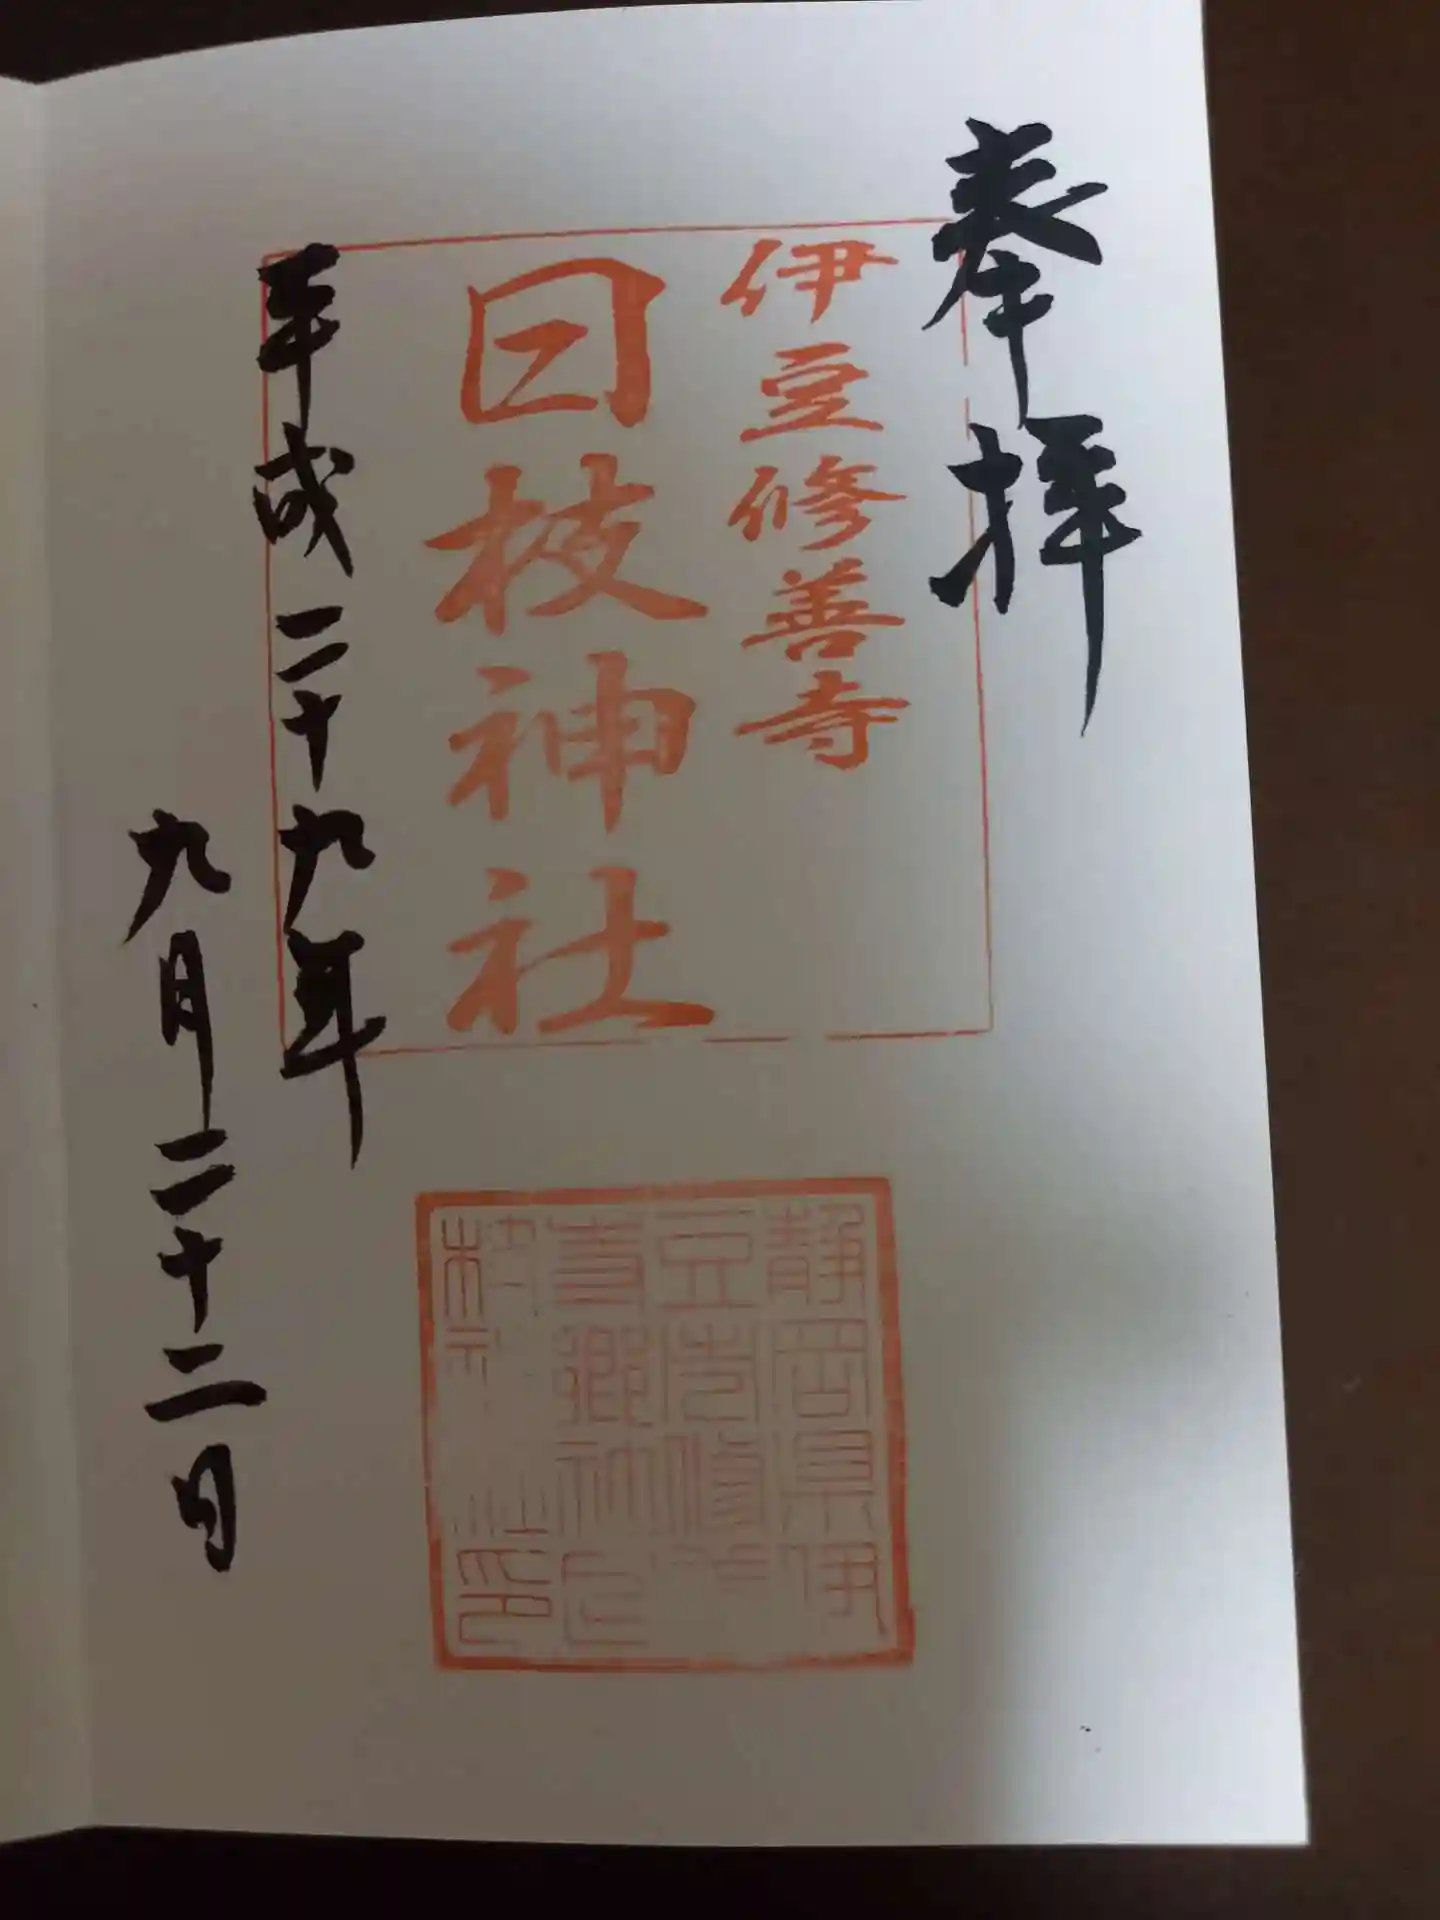 奉拝
伊豆修善寺
日枝神社
平成二十九年
九月二十二日
静岡県伊
豆市修善
寺郷社日
枝神社印